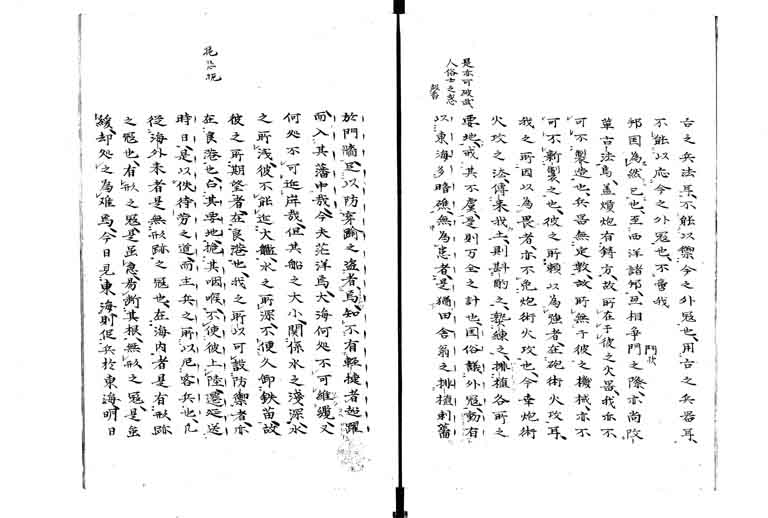 古之兵法耳不能以禦今之外冦也用古之兵器耳
不能以応今之外冦也不啻我
邦固為然已也至西洋諸邦互相争鬥之際亦尚改
革古法焉蓋熕炮有鋳方故所在于彼之火器我亦不
可不製造也兵器無定数故所無于彼之機械亦不
可不新製之也彼所頼以為強者在砲術火攻耳
我之所因以為畏者亦不免炮術火攻也今幸炮術
火攻之法傳来我土則斟酌之挈練之排植各所之
要地戒其不虞是則万全之計也因俗議外冦動有
以東海多暗礁無為患者是猶田舎翁之排植刺藩
是亦可破武
人俗士之惑
於門墻足以防穿踰之盗者焉知不有軽捷者超躍
而入其藩中哉今夫茫洋焉大海何処不可維纜又
何処不可近岸哉但其船之大小関係水之浅深水
之所浅彼不能近大艦水之所深不便久卸鉄苗故
彼之所期望者在良港也我之所以可設防禦者亦
在良港也占其要地扼其咽喉不使彼上陸遷延送
時日是以佚待労之道而主兵之所以厄客兵也凡
従海外来者是無形跡之冦也在海内者是有形跡
之冦也有形之冦是並急労断其根無形之冦是並
緩却処之為難焉今日見東海則促兵於東海明日